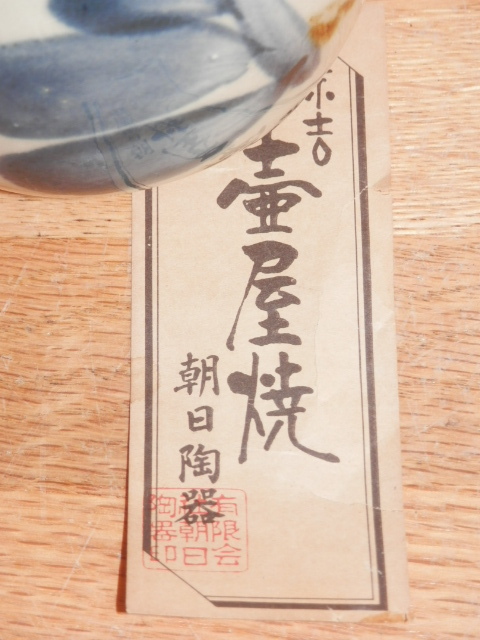 壷屋焼
朝日陶器
有限会
朝日
陶器印